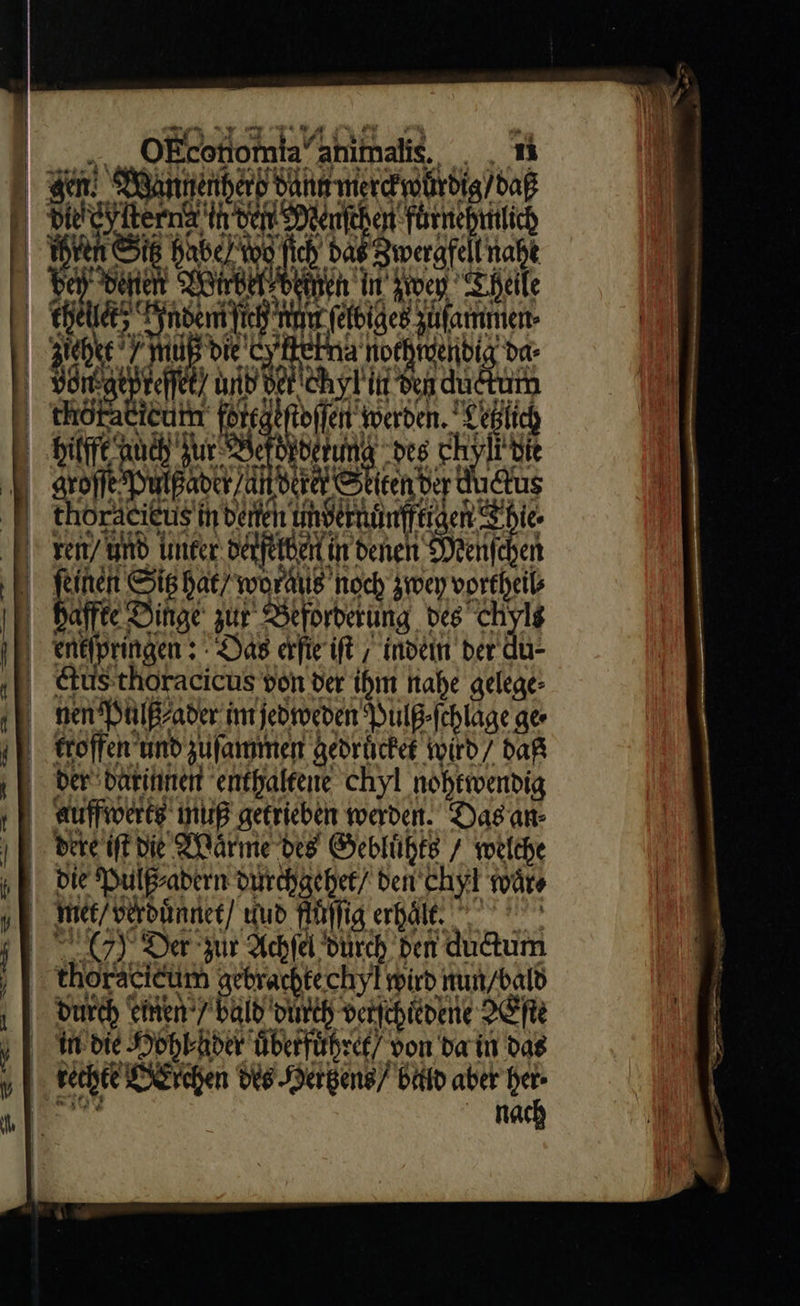 OEconomia animalis. 11
gen. Wannenhero dann merckwürdig/daß
die cysterna in den Menschen fürnehmlich
ihren Sitz habe/ wo sich das Zwergfell nahe
bey denen Wirbel-beinen in zwey Theile
theilet; Indem sich nun selbiges zusammen-
ziehet / muß die cysterna nothwendig da-
von gepresset/ und der chyl in den ductum
thoracicum fortgestossen werden. Letzlich
hilfft auch zur Beförderung des chyli die
grosse Pulßader/an derer Seiten der ductus
thoracicus in denen unvernünfftigen Thie-
ren/ und unter derselben in denen Menschen
seinen Sitz hat/ woraus noch zwey vortheil-
haffte Dinge zur Beforderung des chyls
entspringen: Das erste ist / indem der du-
ctus thoracicus von der ihm nahe gelege-
nen Pulß-ader im jedweden Pulß-schlage ge-
troffen und zusammen gedrücket wird/ daß
der darinnen enthaltene chyl nohtwendig
auffwerts muß getrieben werden. Das an-
dere ist die Wärme des Geblühts / welche
die Pulß-adern durchgehet/ den chyl wär-
met/ verdünnet/ uud flüssig erhält.
(7) Der zur Achsel durch den ductum
thoracicum gebrachte chyl wird nun/bald
durch einen / bald durch verschiedene AEste
in die Hohl-ader überführet/ von da in das
rechte OErchen des Hertzens/ bald aber her-
nach